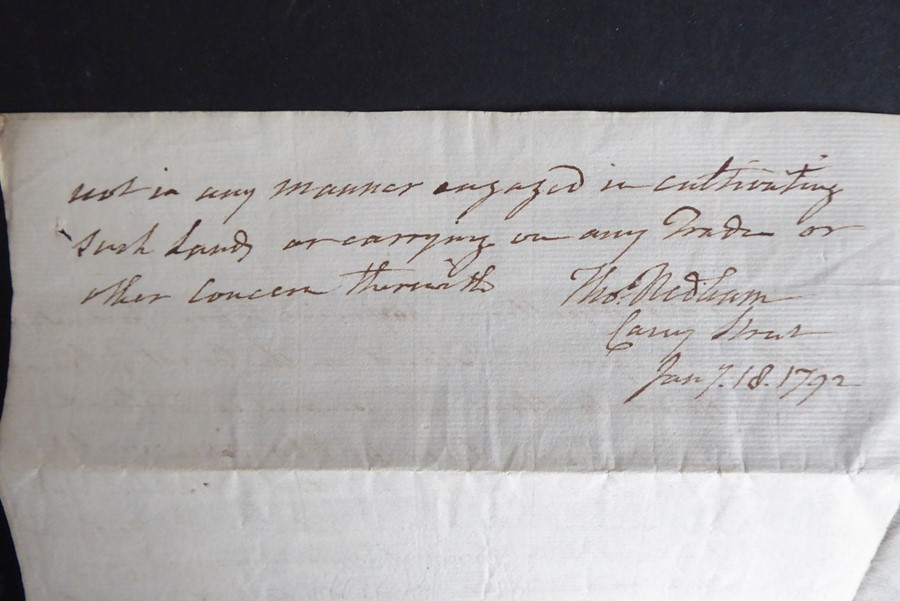 not in any manner engaged in cultivating
such Lands or carrying on any Trade or
other Concern therewith Thos. Nedham
Carey Street
Jany. 18. 1792